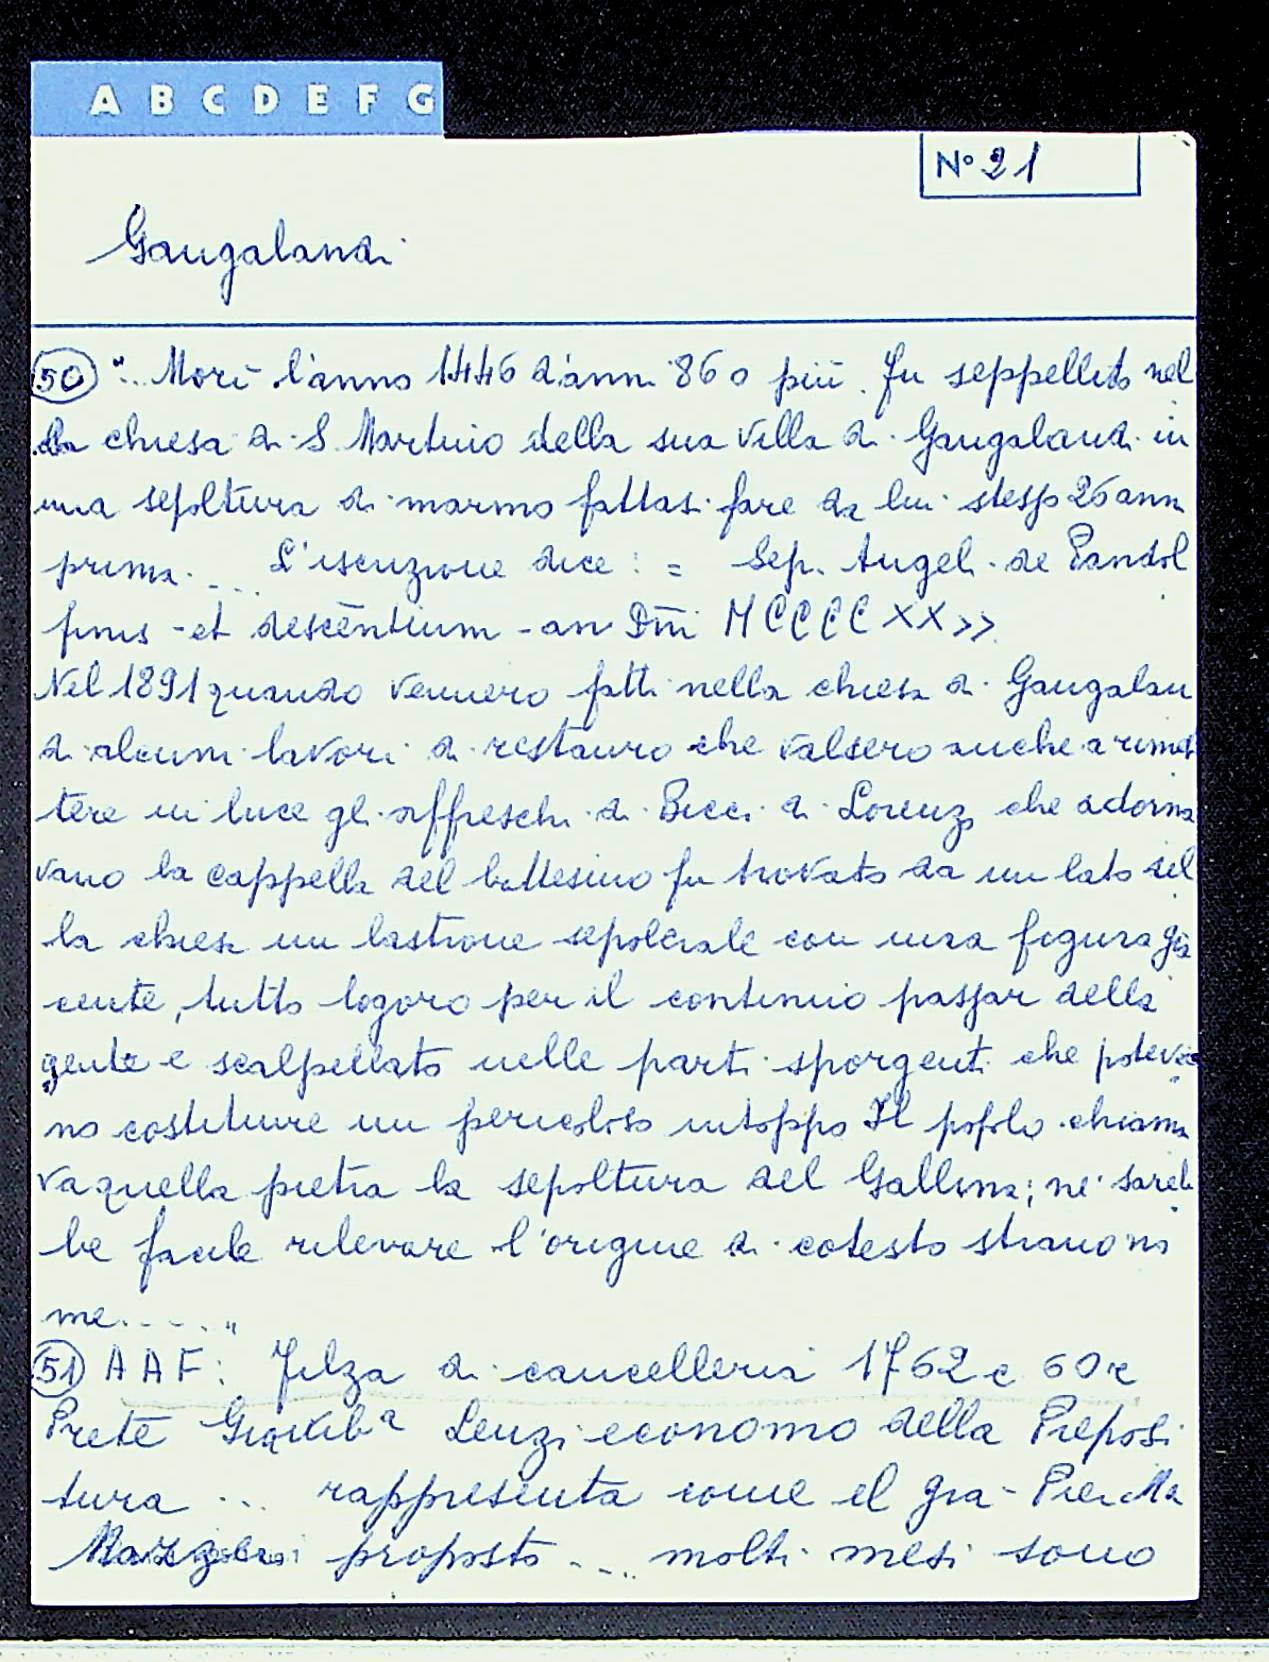 A B C D E F G
N° 21
Gangalandi
50 "... Morì l'anno 1446 d'anni 86 o più. Fu seppellito nel
la chiesa di S. Martino della sua villa di Gangalandi in
una sepoltura di marmo fattasi fare da lui stesso 26 anni
prima... L'iscrizione dice : = Sep. Angeli de Pandol
finis - et descēntium - an Dm̄i MCCCCXX >>
Nel 1891 quando vennero fatti nella chiesa di Gangalan
di alcuni lavori di restauro che valsero anche a rimet
tere in luce gli affreschi di Bicci di Lorenzo che adorna
vano la cappella del battesimo fu trovato da un lato del
la chiesa un lastrone sepolcrale con una figura gia
cente, tutto logoro per il continuo passar della
gente e scalpellato nelle parti sporgenti che poteva
no costituire un pericoloso intoppo Il popolo chiama
va quella pietra la sepoltura del Gallina; nè sareb
be facile rilevare l'origine di cotesto strano no
me....."
51 AAF: Filza di cancelleria 1762 c 60r
Prete Lenzi economo della Preposi
tura ... rappresenta come el gia Pier Ma
proposto .... molti mesi sono